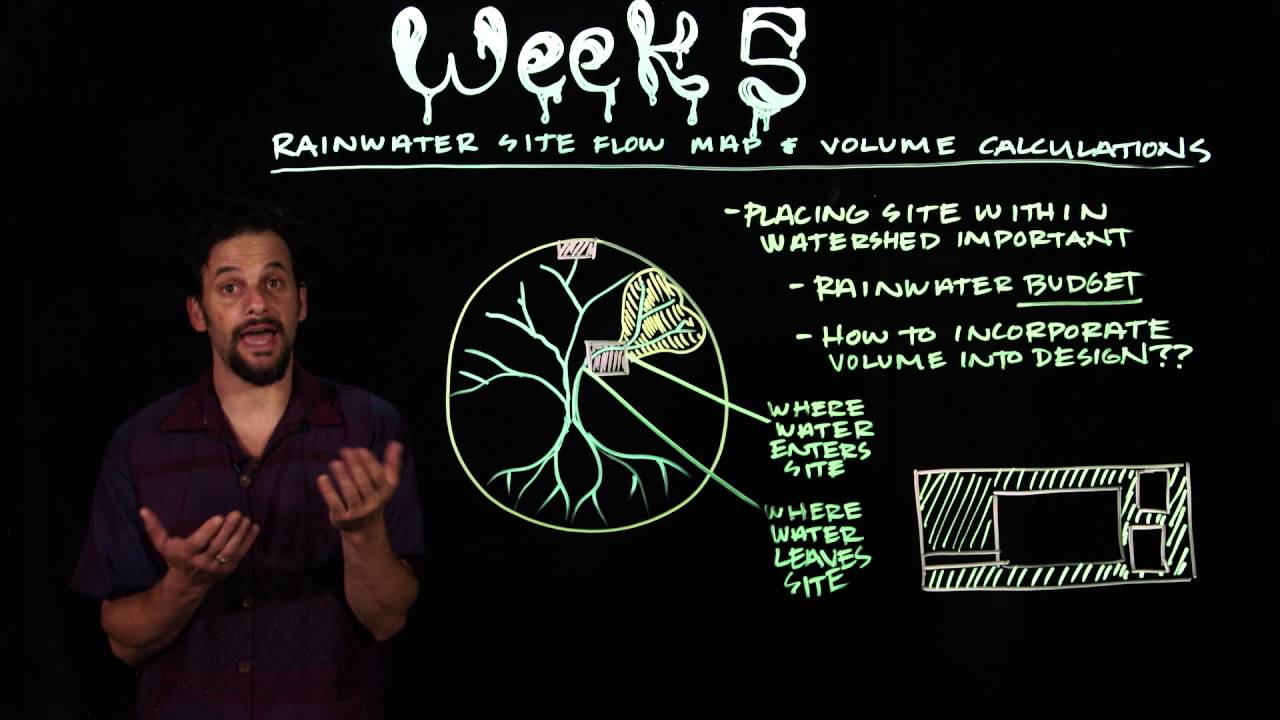 Week 5
RAINWATER SITE FLOW MAP & VOLUME CALCULATIONS
- PLACING SITE WITHIN
WATERSHED IMPORTANT
- RAINWATER BUDGET
- HOW TO INCORPORATE
VOLUME INTO DESIGN??
WHERE
WATER
ENTERS
SITE
WHERE
WATER
LEAVES
SITE